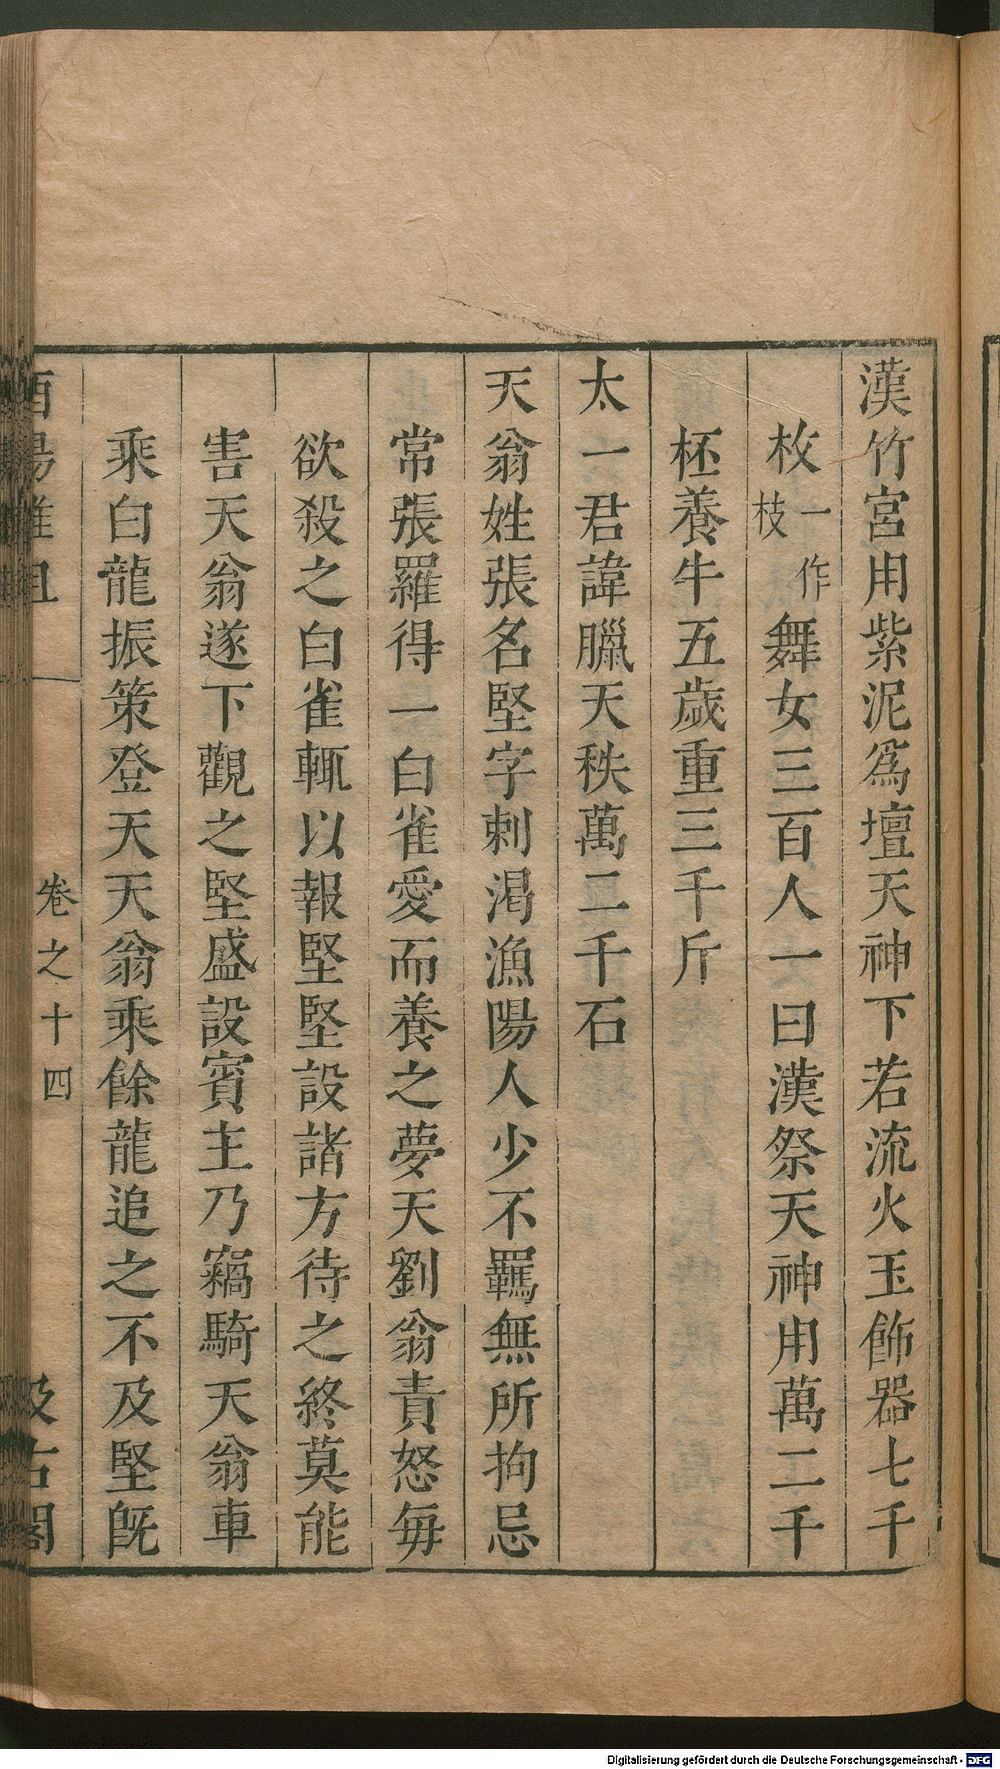 漢竹宮用紫泥爲壇天神下若流火玉飾器七千
枚一作枝舞女三百人一曰漢祭天神用萬二千
杯養牛五歲重三千斤
太一君諱臘天秩萬二千石
天翁姓張名堅字刺渴漁陽人少不羈無所拘忌
常張羅得一白雀愛而養之夢天劉翁責怒每
欲殺之白雀輒以報堅堅設諸方待之終莫能
害天翁遂下觀之堅盛設賓主乃竊騎天翁車
乘白龍振策登天天翁乘餘龍追之不及堅旣
酉陽雜俎 卷之十四 汲古閣
Digitalisierung gefördert durch die Deutsche Forschungsgemeinschaft - DFG